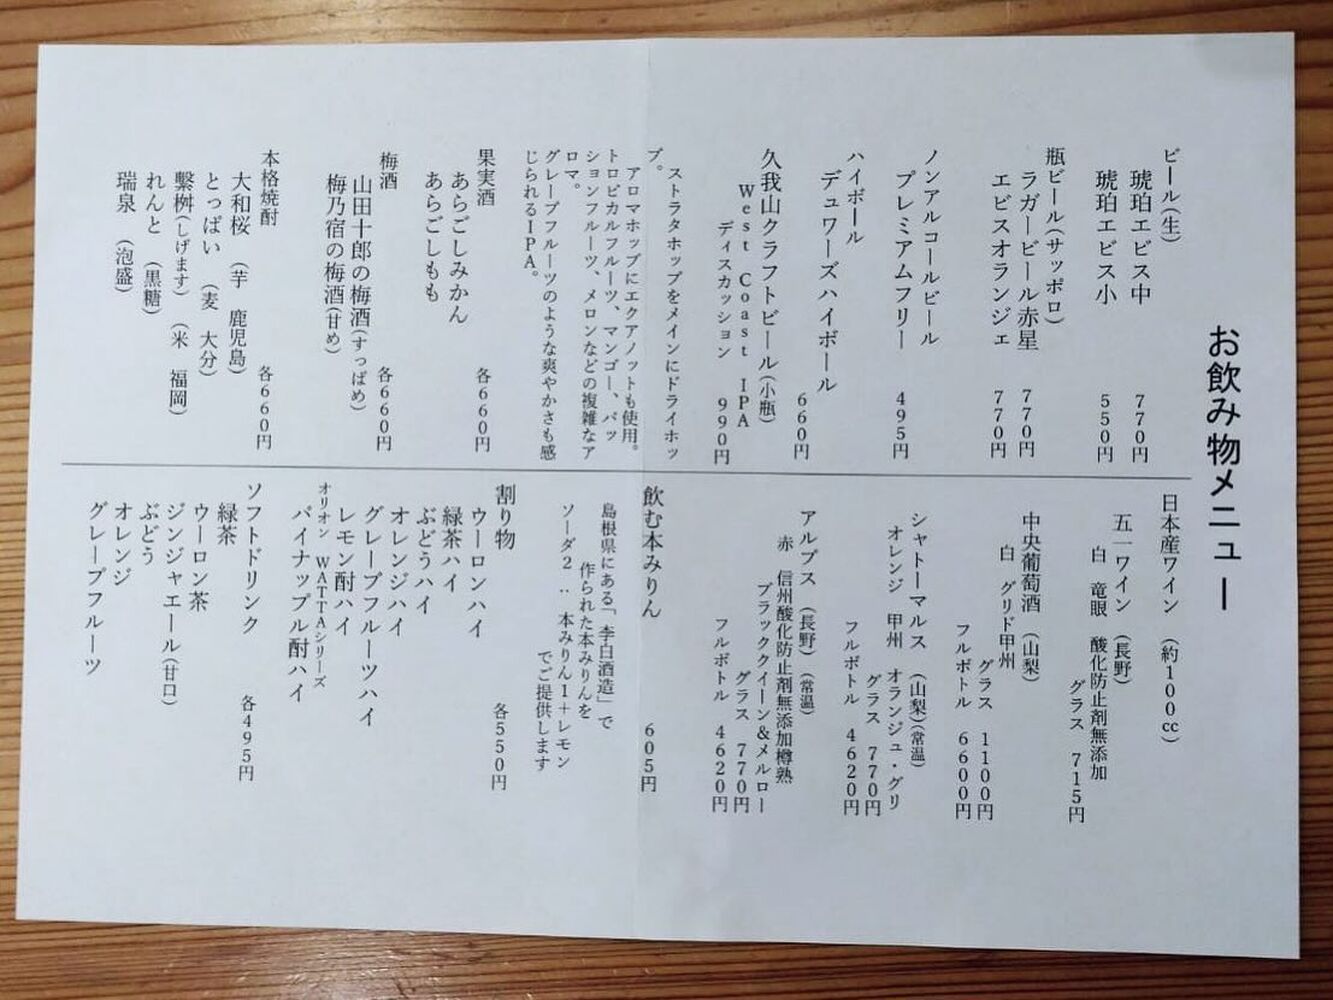 お飲み物メニュー
ビール(生)
琥珀エビス中 770円
琥珀エビス小 550円
瓶ビール(サッポロ)
ラガービール赤星 770円
エビスオランジェ 770円
ノンアルコールビール
プレミアムフリー 495円
ハイボール
デュワーズハイボール 660円
久我山クラフトビール(小瓶)
West Coast IPA
ディスカッション 990円
ストラタホップをメインにドライホッ
プ。
アロマホップにエクアノットも使用。
トロピカルフルーツ、マンゴー、パッ
ションフルーツ、メロンなどの複雑なア
ロマ。
グレープフルーツのような爽やかさも感
じられるIPA。
果実酒 各660円
あらごしみかん
あらごしもも
梅酒 各660円
山田十郎の梅酒(すっぱめ)
梅乃宿の梅酒(甘め)
本格焼酎 各660円
大和桜 (芋 鹿児島)
とっぱい (麦 大分)
繋桝(しげます) (米 福岡)
れんと (黒糖)
瑞泉 (泡盛)
日本産ワイン (約100cc)
五一ワイン (長野)
白 竜眼 酸化防止剤無添加
グラス 715円
中央葡萄酒 (山梨)
白 グリド甲州
グラス 1100円
フルボトル 6600円
シャトーマルス (山梨)(常温)
オレンジ 甲州 オランジュ・グリ
グラス 770円
フルボトル 4620円
アルプス (長野) (常温)
赤 信州酸化防止剤無添加樽熟
ブラッククイーン&メルロー
グラス 770円
フルボトル 4620円
飲む本みりん 605円
島根県にある「李白酒造」で
作られた本みりんを
ソーダ2:本みりん1+レモン
でご提供します
割り物 各550円
ウーロンハイ
緑茶ハイ
ぶどうハイ
オレンジハイ
グレープフルーツハイ
レモン酎ハイ
オリオン WATTAシリーズ
パイナップル酎ハイ
ソフトドリンク 各495円
緑茶
ウーロン茶
ジンジャエール(甘口)
ぶどう
オレンジ
グレープフルーツ